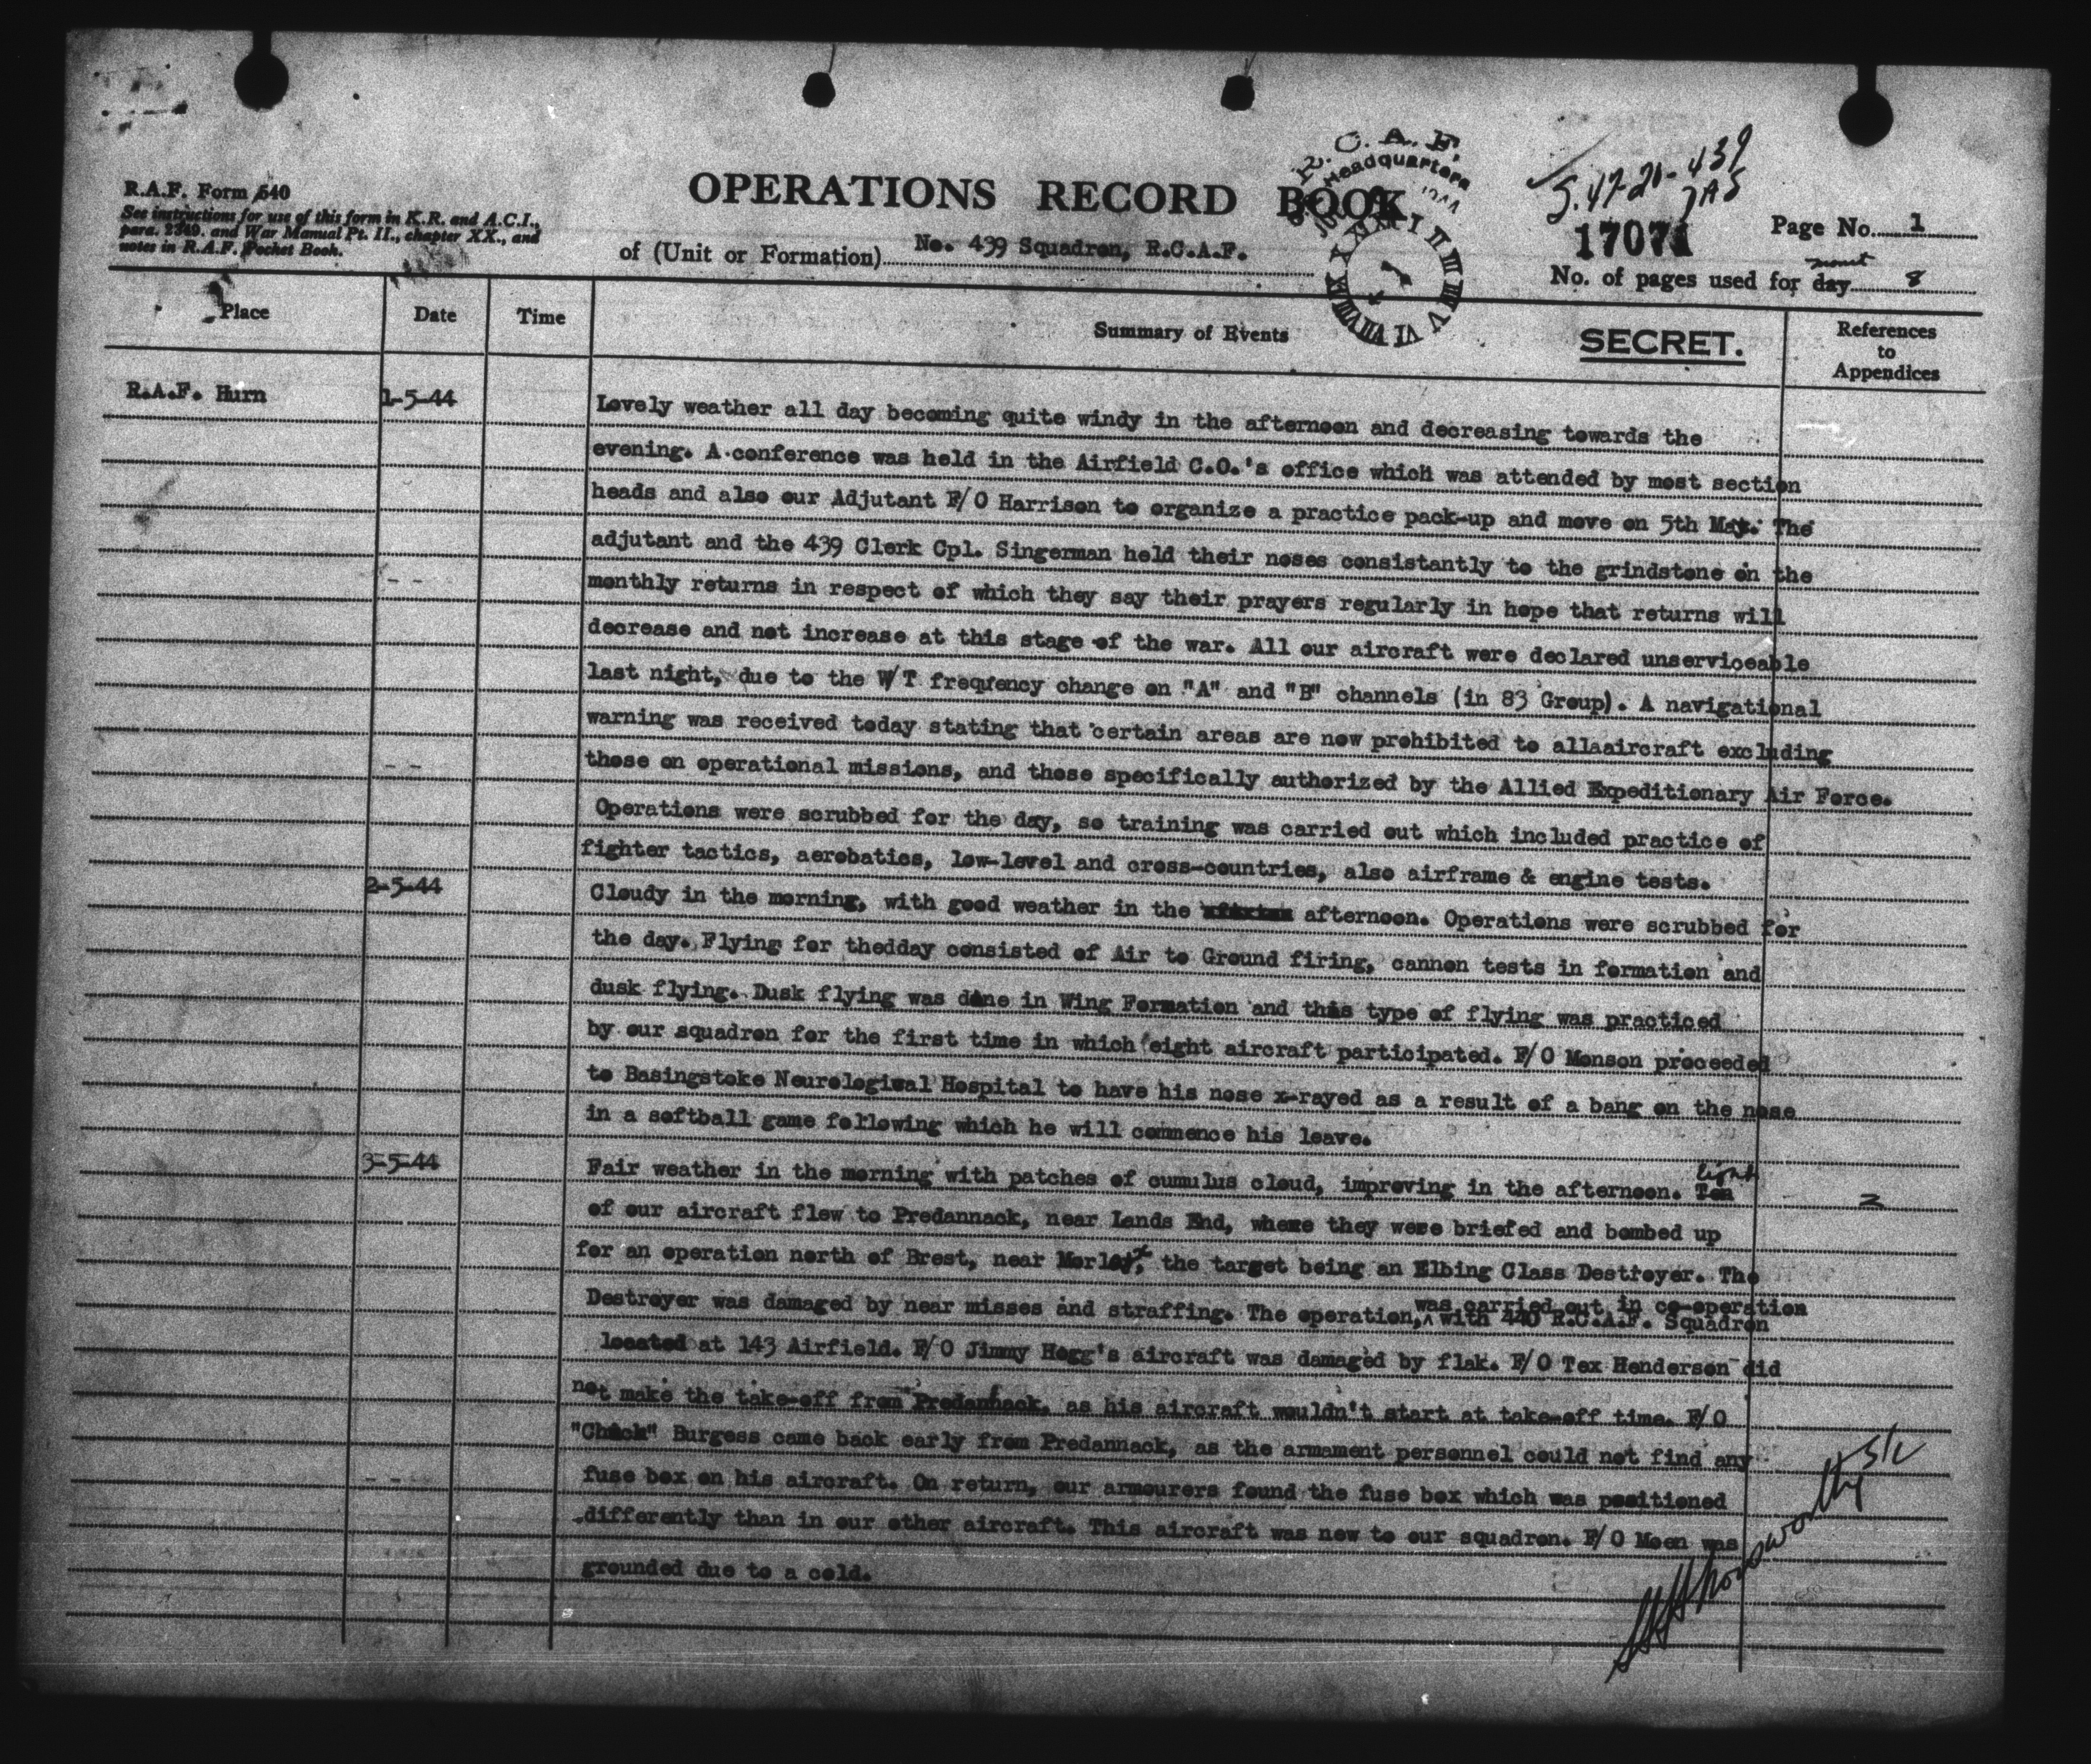 R.A.F. Form 540
See instructions for use of this form in K.R. and A.C.I.,
para. 2349. and War Manual Pt. II., chapter XX., and
notes in R.A.F. Pocket Book.
OPERATIONS RECORD BOOK
of (Unit or Formation) No. 439 Squadron, R.C.A.F.
R.C.A.F. Headquarters
I II III IIII V VI VII VIII IX X XI XII
S.47-21-439
17071
Page No. 1
No. of pages used for day 8
Place
Date
Time
Summary of Events
SECRET.
References
to
Appendices
R.A.F. Hurn
1-5-44
Lovely weather all day becoming quite windy in the afternoon and decreasing towards the
evening. A conference was held in the Airfield C.O.'s office which was attended by most section
heads and also our Adjutant F/O Harrison to organize a practice pack-up and move on 5th May. The
adjutant and the 439 Clerk Cpl. Singerman held their noses consistantly to the grindstone on the
monthly returns in respect of which they say their prayers regularly in hope that returns will
decrease and not increase at this stage of the war. All our aircraft were declared unserviceable
last night, due to the W/T frequency change on "A" and "B" channels (in 83 Group). A navigational
warning was received today stating that certain areas are now prohibited to allaaircraft excluding
those on operational missions, and those specifically authorized by the Allied Expeditionary Air Force.
Operations were scrubbed for the day, so training was carried out which included practice of
fighter tactics, aerobatics, low-level and cross-countries, also airframe & engine tests.
2-5-44
Cloudy in the morning, with good weather in the afternoon. Operations were scrubbed for
the day. Flying for thedday consisted of Air to Ground firing, cannon tests in formation and
dusk flying. Dusk flying was done in Wing Formation and this type of flying was practiced
by our squadron for the first time in which eight aircraft participated. F/O Monson proceeded
to Basingstoke Neurological Hospital to have his nose x-rayed as a result of a bang on the nose
in a softball game following which he will commence his leave.
3-5-44
Fair weather in the morning with patches of cumulus cloud, improving in the afternoon. Ten eight
2
of our aircraft flew to Predannack, near Lands End, where they were briefed and bombed up
for an operation north of Brest, near Morlaix, the target being an Elbing Class Destroyer. The
Destroyer was damaged by near misses and straffing. The operation, was carried out in co-operation
with 440 R.C.A.F. Squadron
located at 143 Airfield. F/O Jimmy Hogg's aircraft was damaged by flak. F/O Tex Henderson did
not make the take-off from Predannack, as his aircraft wouldn't start at take-off time. F/O
"Chuck" Burgess came back early from Predannack, as the armament personnel could not find any
fuse box on his aircraft. On return, our armourers found the fuse box which was positioned
differently than in our other aircraft. This aircraft was new to our squadron. F/O Moen was
grounded due to a cold.
S/L